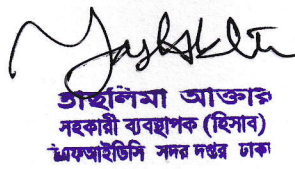 তাহলিমা আক্তার
সহকারী ব্যবস্থাপক (হিসাব)
এফআইডিসি সদর দপ্তর ঢাকা